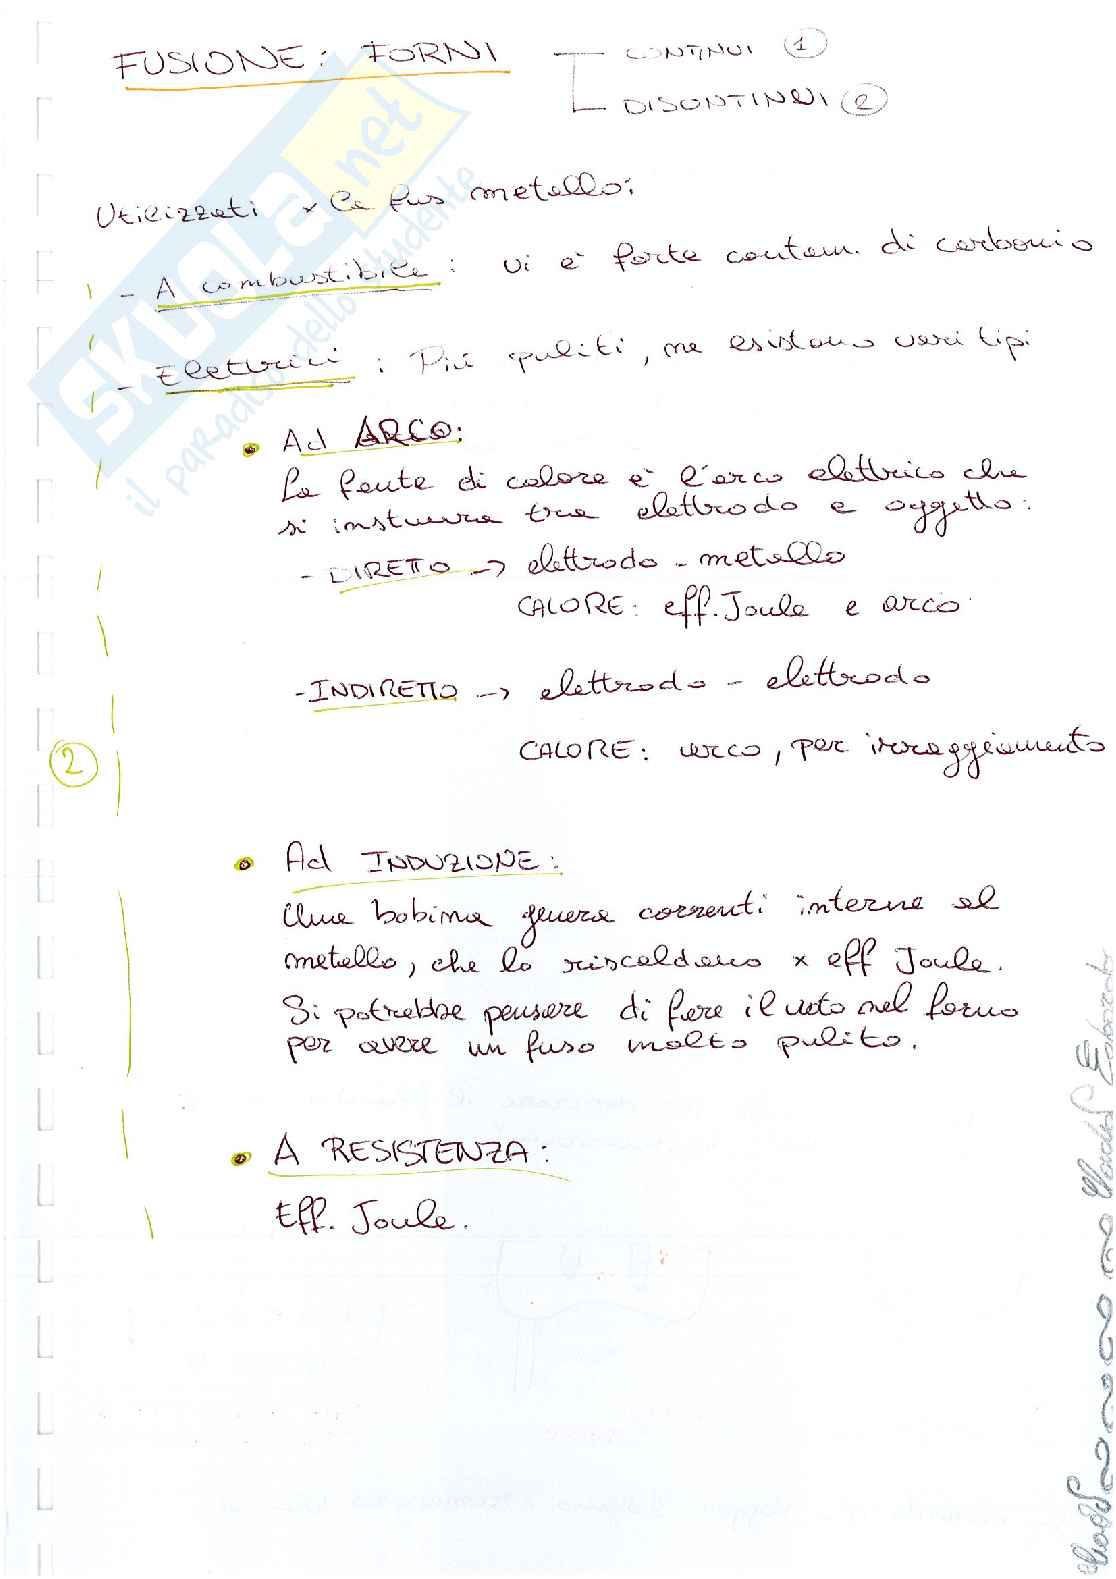 FUSIONE: FORNI
CONTINUI 1
DISONTINUI 2
Utilizzati x la fus metallo:
- A combustibile : vi è forte contam. di carbonio
- Elettrici : Più puliti, ma esistono vari tipi
• Ad ARCO:
La fonte di calore è l'arco elettrico che
si instaura tra elettrodo e oggetto:
- DIRETTO -> elettrodo - metallo
CALORE: eff. Joule e arco
- INDIRETTO -> elettrodo - elettrodo
CALORE: arco, per irraggiamento
2
• Ad INDUZIONE:
Una bobina genera correnti interne al
metallo, che lo riscaldano x eff Joule.
Si potrebbe pensare di fare il vuoto nel forno
per avere un fuso molto pulito.
• A RESISTENZA:
Eff. Joule.
SKUOLA.net
il paradiso dello studente